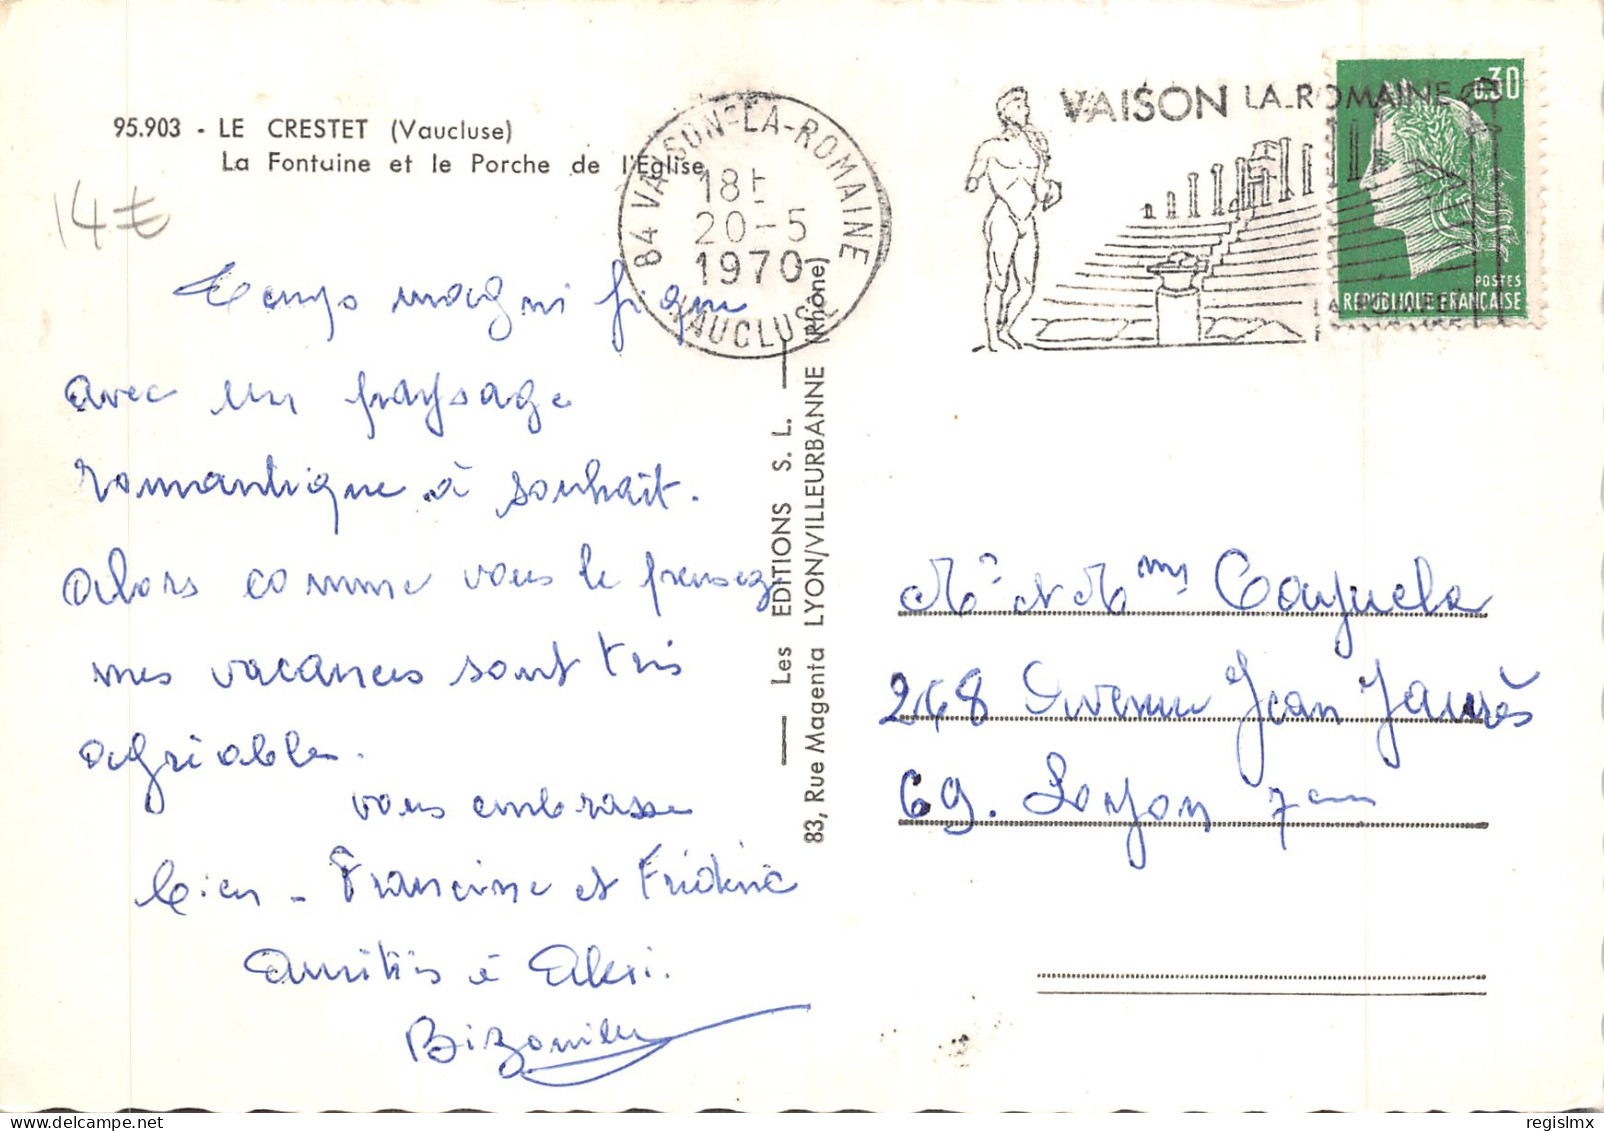 95.903 - LE CRESTET (Vaucluse)
La Fontuine et le Porche de l'Eglise
14€
Temps magnifique
avec un paysage
romantique à souhait.
alors comme vous le pensez
mes vacances sont très
agréables.
vous embrasse
bien - Francine et Frédéric
Amitiés à
84 VAISON-LA-ROMAINE
18H
20-5
1970
VAUCLUSE
VAISON LA-ROMAINE
0.30
POSTES
REPUBLIQUE FRANÇAISE
Les EDITIONS S. L.
83, Rue Magenta LYON/VILLEURBANNE (Rhône)
Mr et Mme Cayuela
268 Avenue Jean Jaurès
69. Lyon 7eme
www.delcampe.net
regislmx